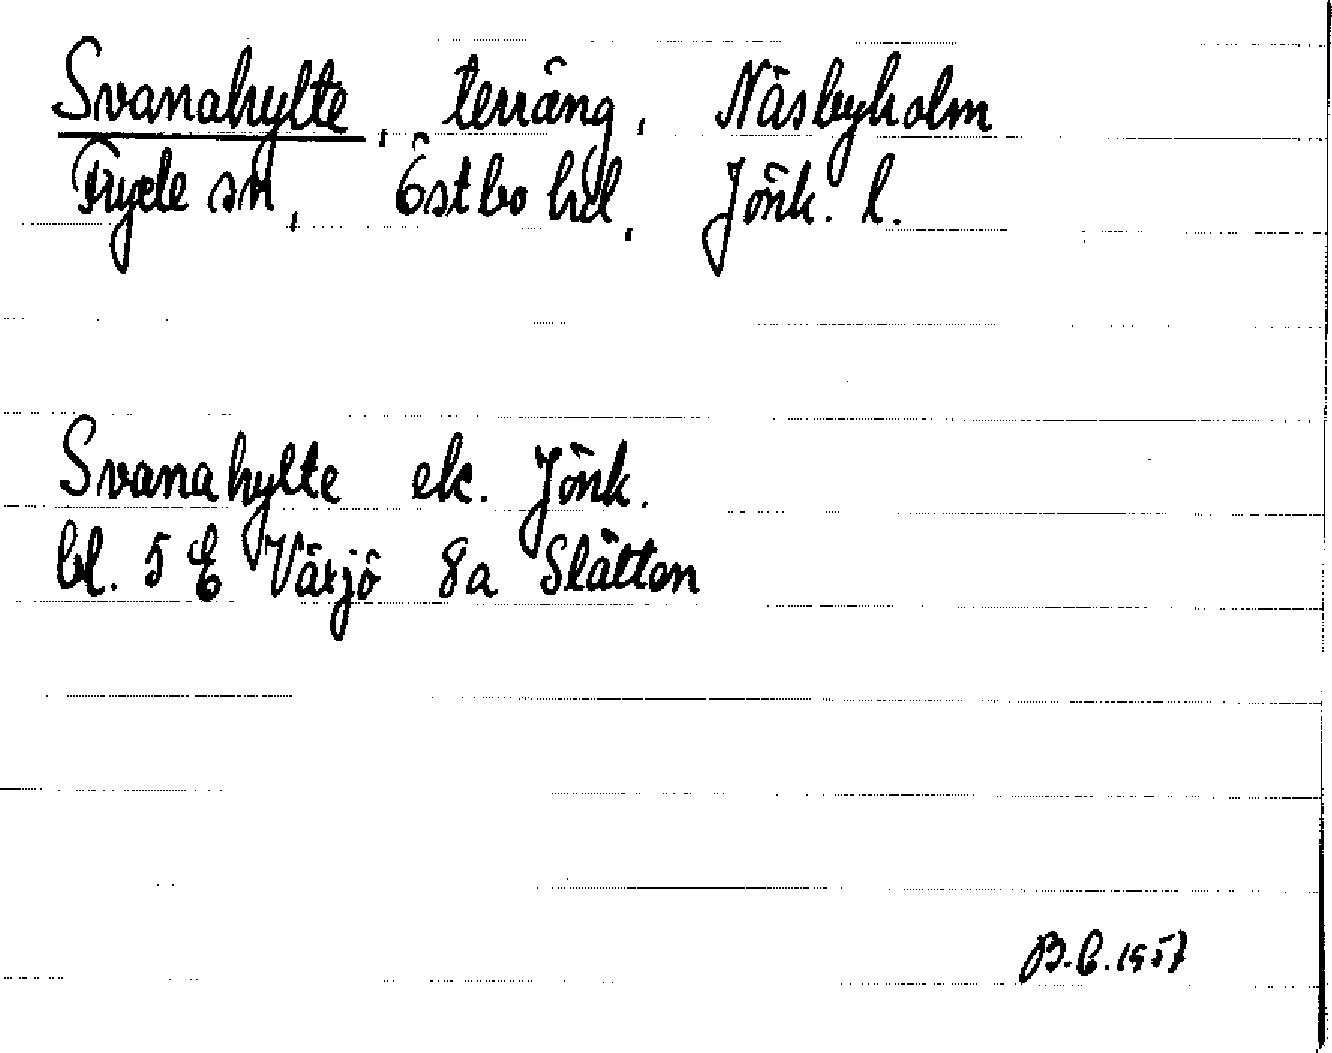 Svanahylte, terräng, Näsbyholm
Fryele sn, Östbo hd, Jönk. l.
Svanahylte ek. Jönk.
bl. 5 E Växjö 8a Slätten
B.C. 1957